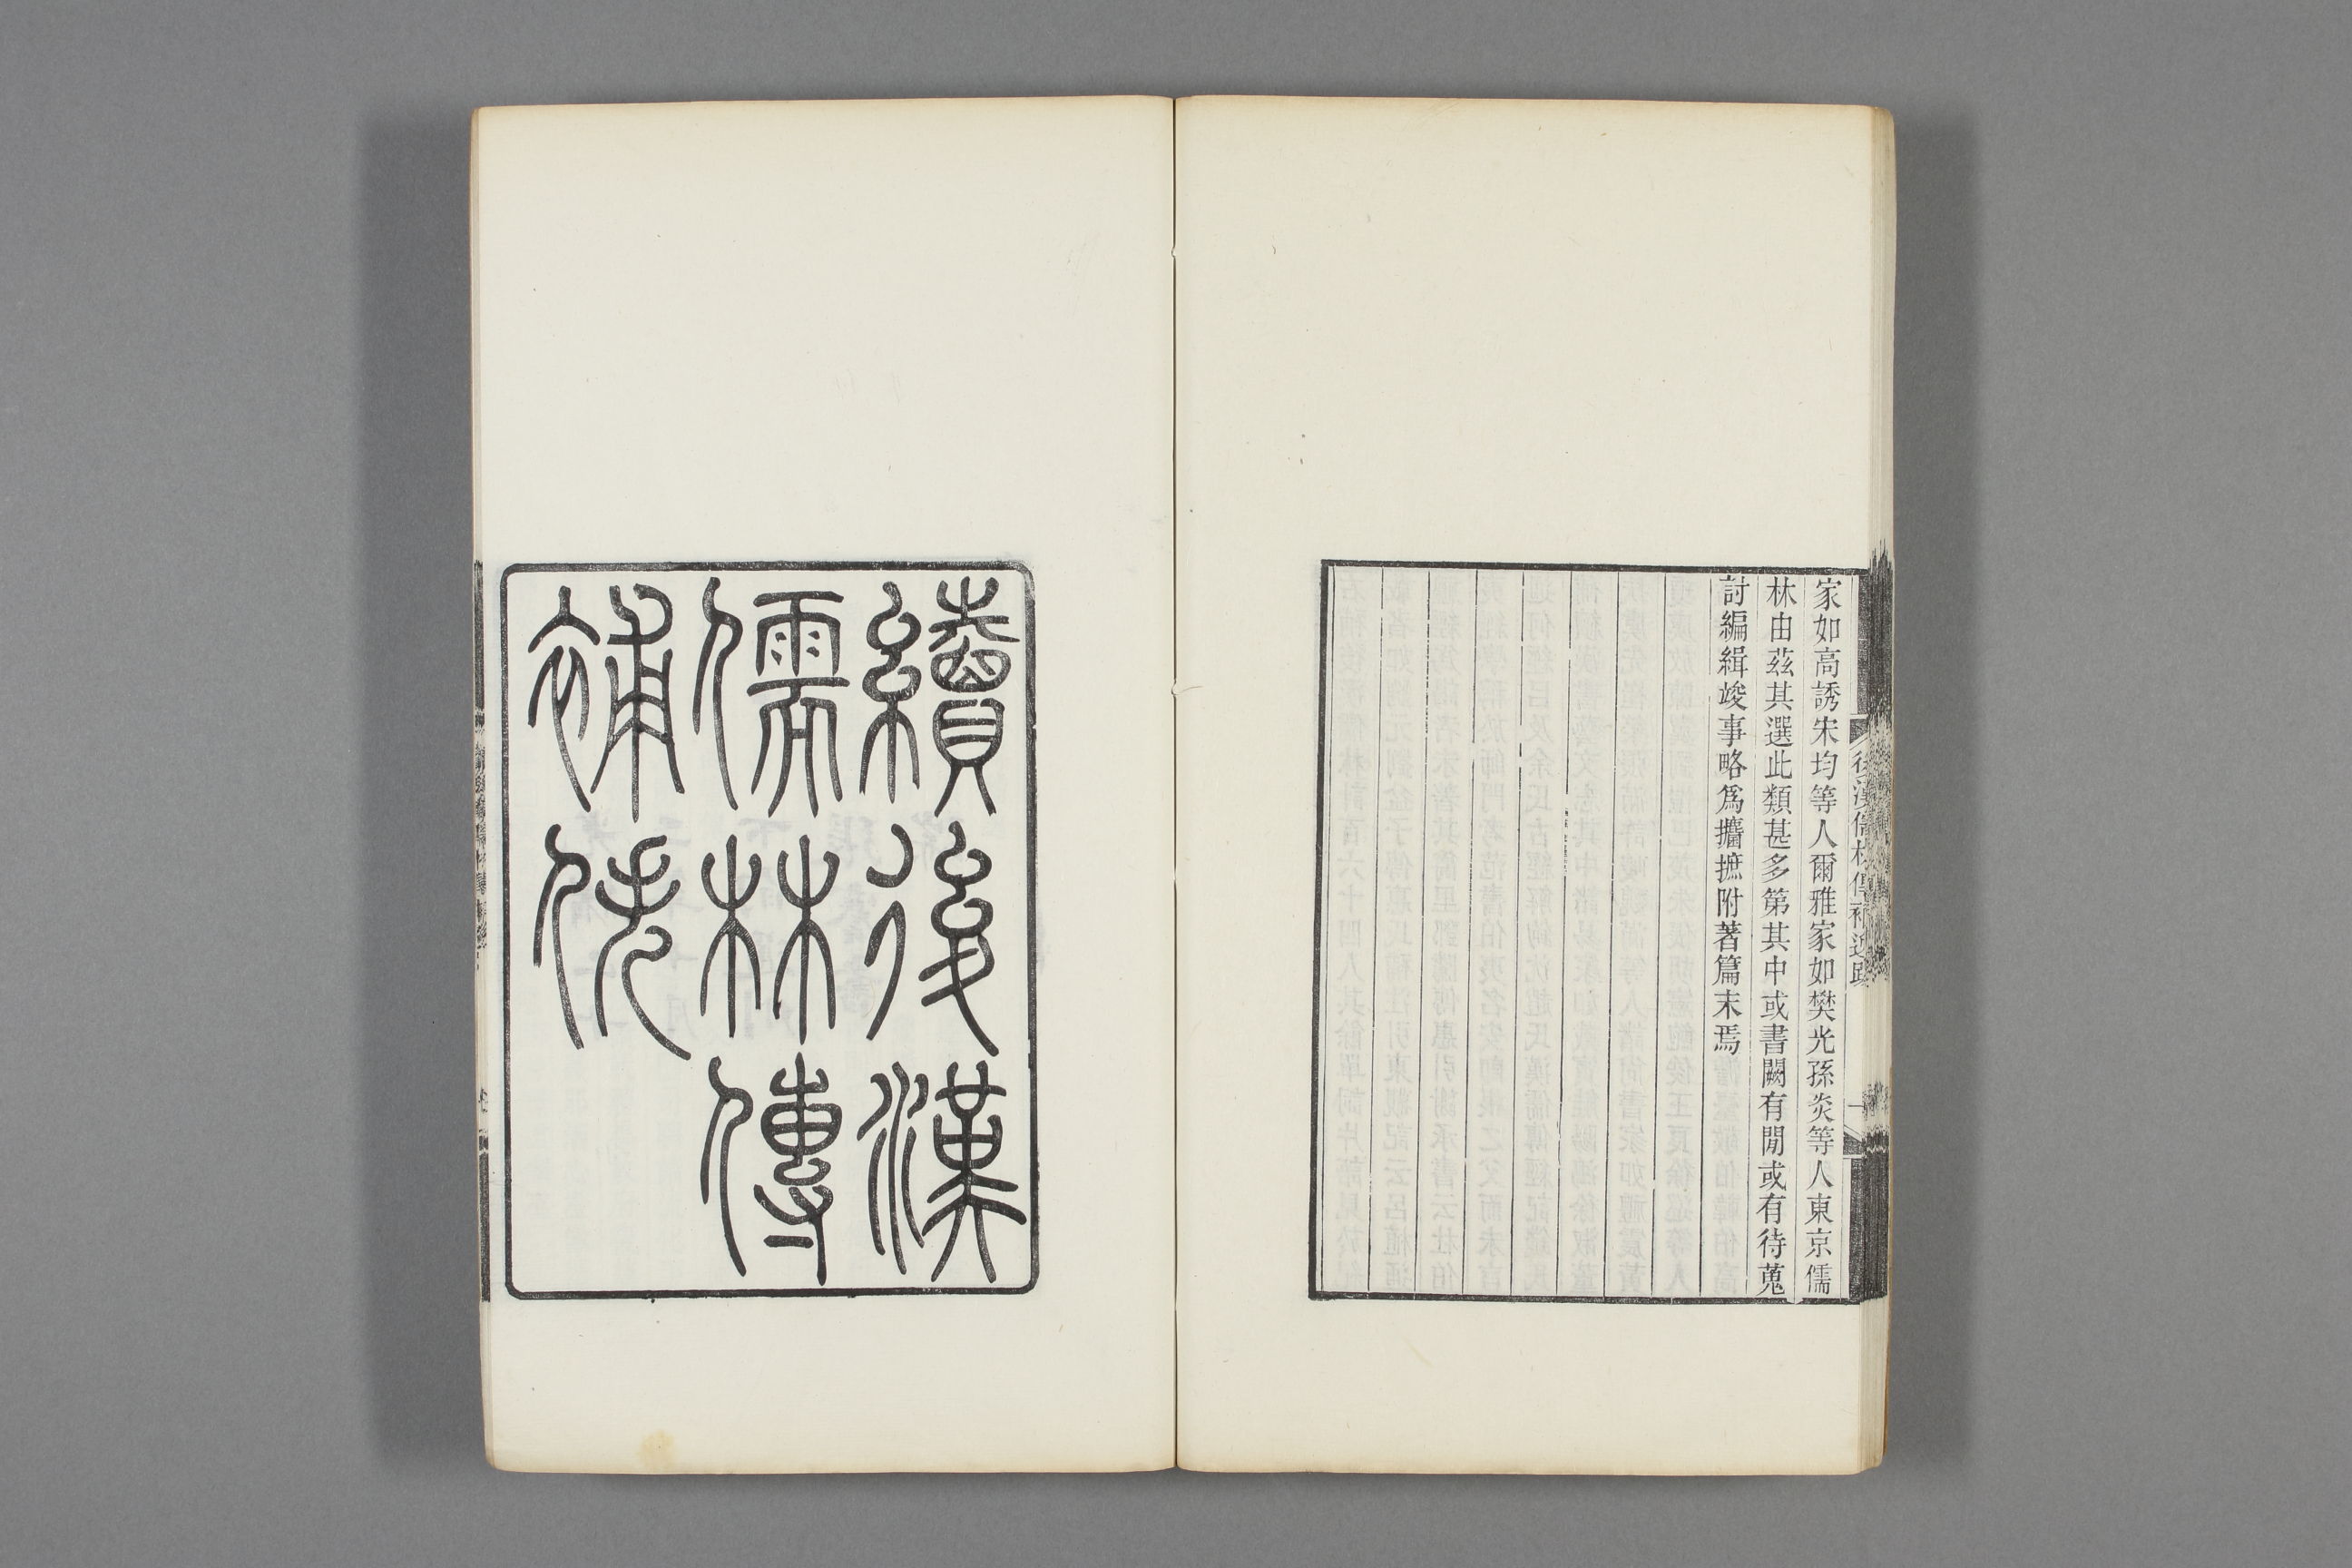 後漢儒林傳補逸跋
一
家如高誘宋均等人爾雅家如樊光孫炎等人東京儒
林由茲其選此類甚多第其中或書闕有閒或有待蒐
討編緝竣事略爲攟摭附著篇末焉
續後漢
儒林傳
補佚